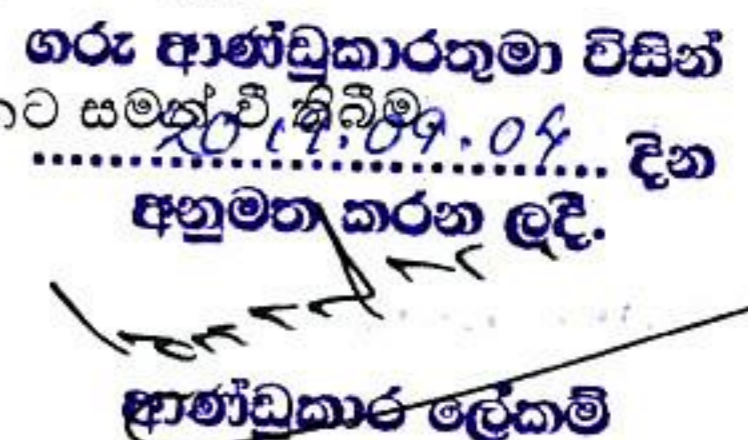 ගරු ආණ්ඩුකාරතුමා විසින්
ට සමත් වී තිබීම
09.04 දින
අනුමත කරන ලදී.
ආණ්ඩුකාර ලේකම්